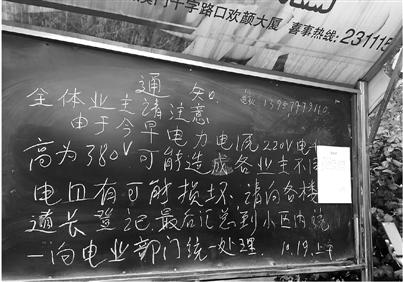 十字路口欢颜大厦 喜事热线:231115
通 知
全体业主请注意
由于今早电力电流220V电
高为380V可能造成各业主不同
电皿有可能损坏.请向各楼
道长登记.最后汇总到小区内统
一向电业部门统一处理. 10.19.上午